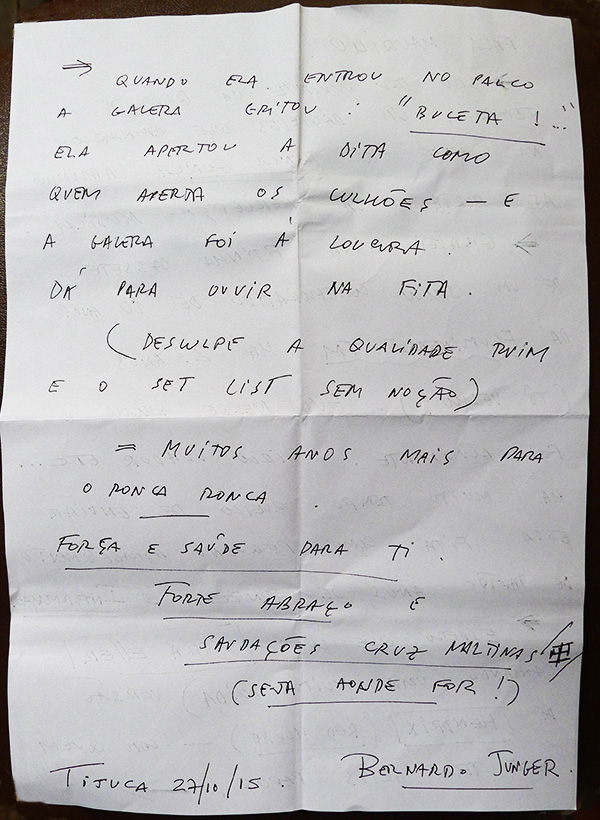 ⇒ QUANDO ELA ENTROU NO PALCO
A GALERA GRITOU : "BUCETA !..."
ELA APERTOU A DITA COMO
QUEM APERTA OS CULHÕES — E
A GALERA FOI À LOUCURA.
DÁ PARA OUVIR NA FITA.
(DESCULPE A QUALIDADE RUIM
E O SET LIST SEM NOÇÃO)
= MUITOS ANOS MAIS PARA
O RONCA RONCA.
FORÇA E SAÚDE PARA TI.
FORTE ABRAÇO E
SAUDAÇÕES CRUZ MALTINAS
(SEJA AONDE FOR !)
TIJUCA 27/10/15. BERNARDO JUNGER.